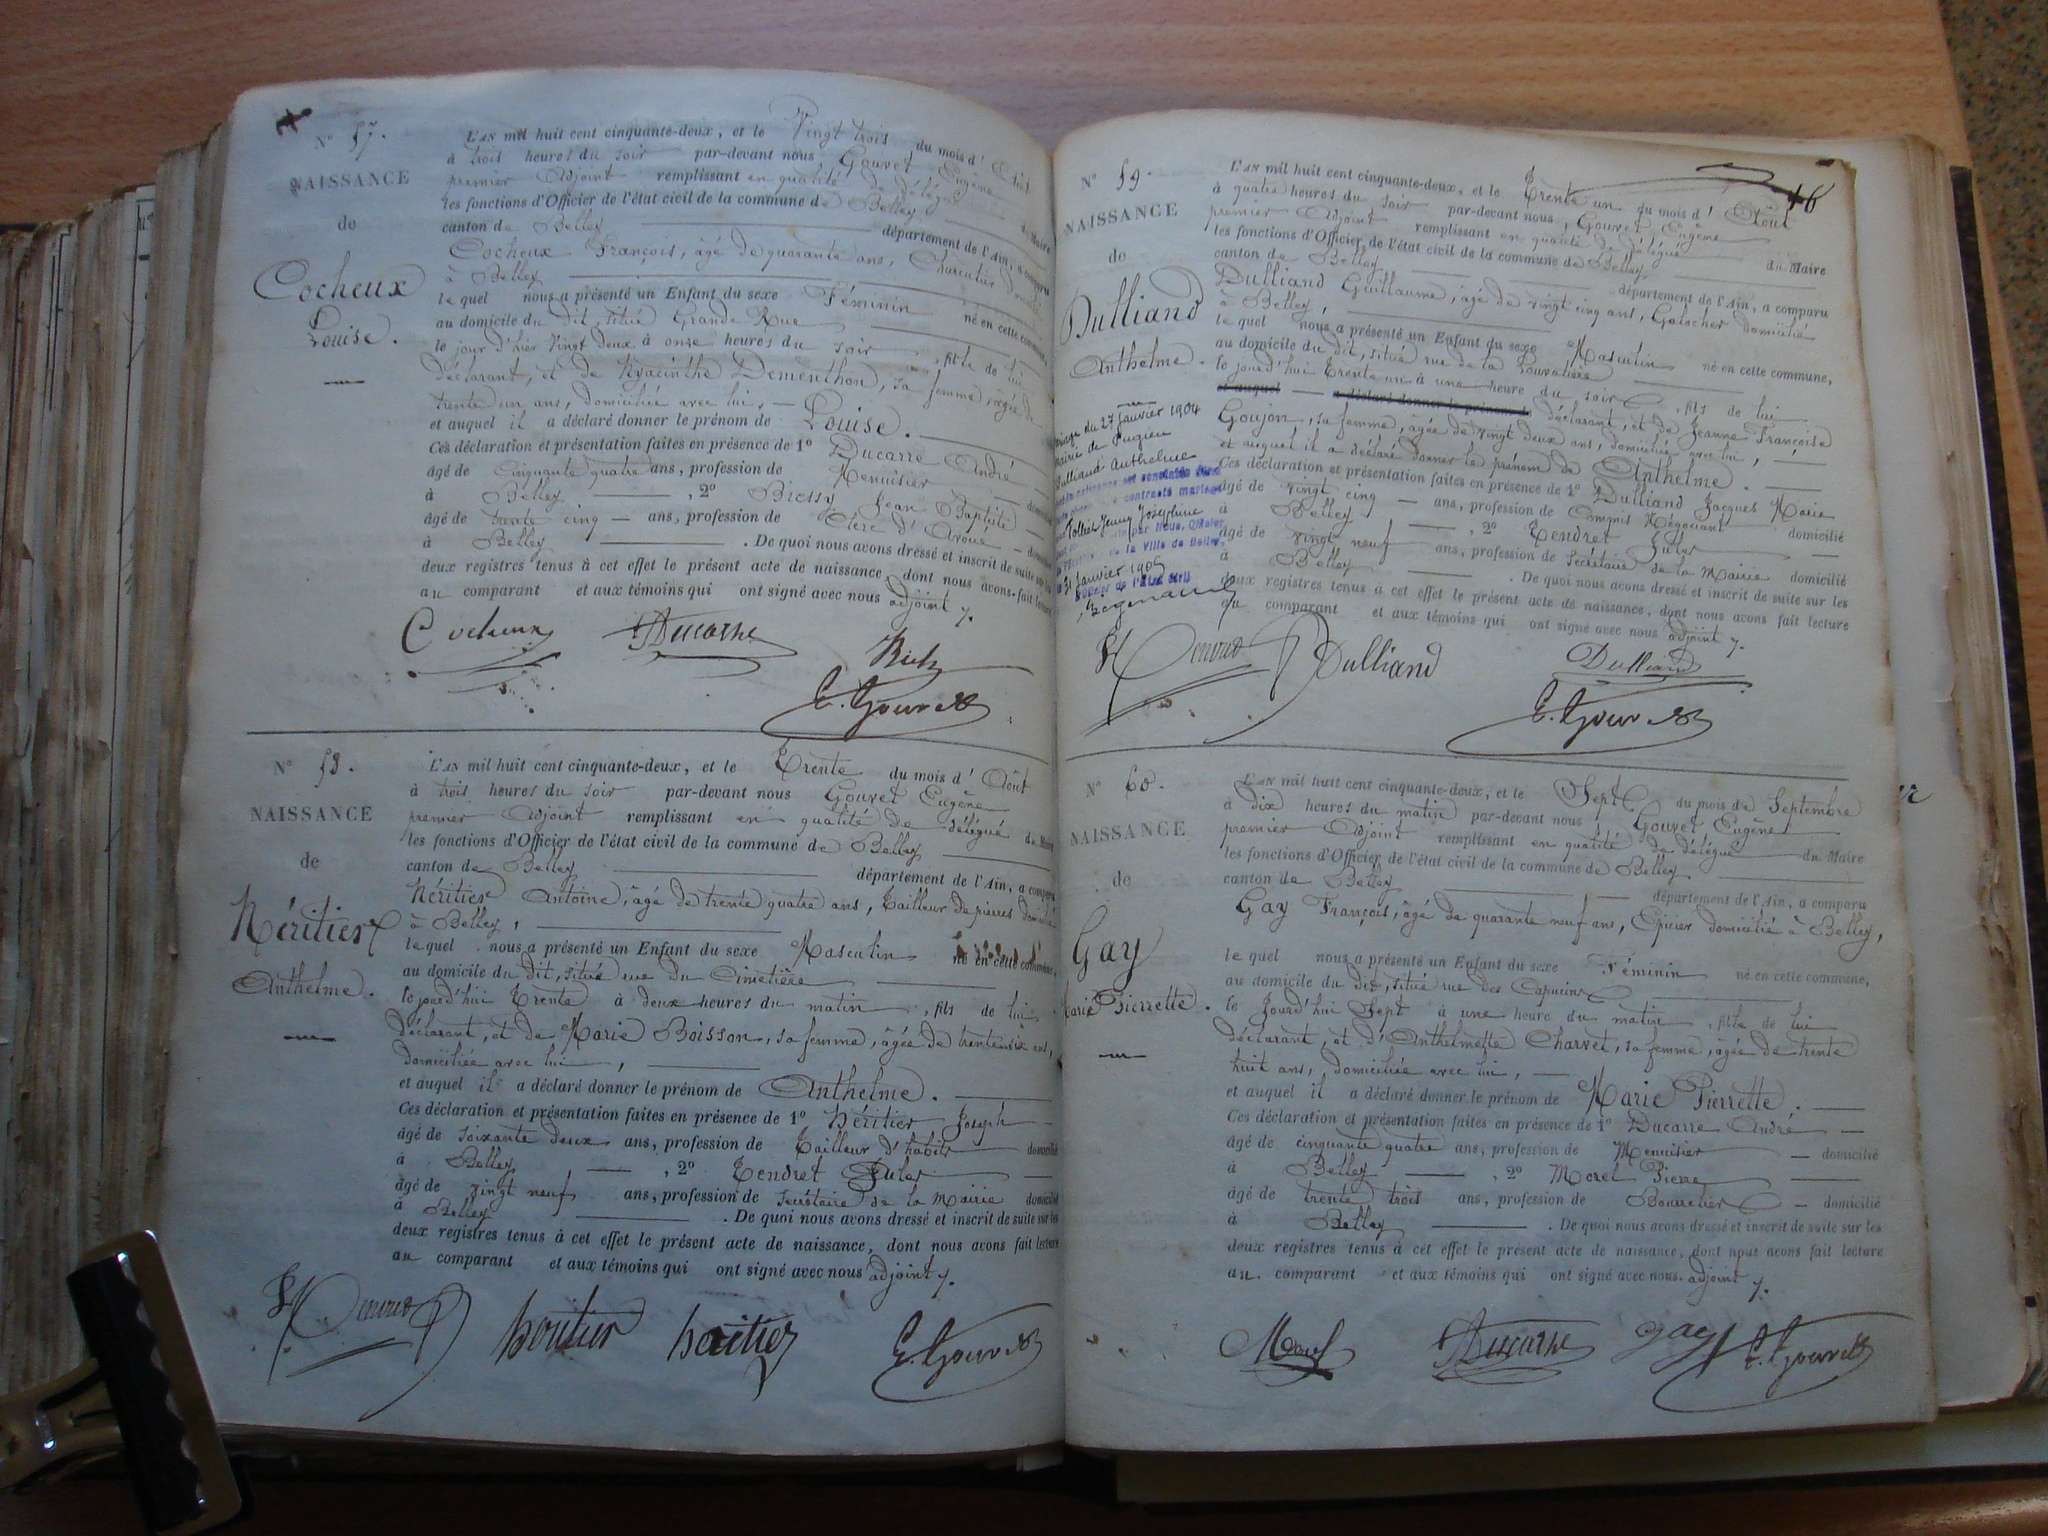 N° 57.
NAISSANCE
de
Cocheux
Louise.
L'AN mil huit cent cinquante-deux, et le Vingt trois du mois d' Août
à trois heures du soir par-devant nous Gouvet Eugène
premier Adjoint remplissant en qualité de délégué du Maire
les fonctions d'Officier de l'état civil de la commune de Belley
canton de Belley département de l'Ain, a comparu
Cocheux François, âgé de quarante ans, Charcutier domicilié
à Belley
le quel nous a présenté un Enfant du sexe Féminin né en cette commune,
au domicile du dit, situé Grande Rue
le jour d'hier Vingt deux à onze heures du soir, fille de lui
déclarant, et de Hyacinthe Dementhon, sa femme, âgée de
trente un ans, domiciliée avec lui,
et auquel il a déclaré donner le prénom de Louise.
Ces déclaration et présentation faites en présence de 1° Ducarre André
âgé de Cinquante quatre ans, profession de Menuisier domicilié
à Belley, 2° Jean Baptiste
âgé de trente cinq ans, profession de Clerc d'Avoué domicilié
à Belley. De quoi nous avons dressé et inscrit de suite sur les
deux registres tenus à cet effet le présent acte de naissance, dont nous avons fait lecture
au comparant et aux témoins qui ont signé avec nous adjoint
Cocheux Ducarre
E. Gouvet
N° 58.
NAISSANCE
de
Héritier
Anthelme.
L'AN mil huit cent cinquante-deux, et le Trente du mois d' Août
à trois heures du soir par-devant nous Gouvet Eugène
premier Adjoint remplissant en qualité de délégué du Maire
les fonctions d'Officier de l'état civil de la commune de Belley
canton de Belley département de l'Ain, a comparu
Héritier Antoine, âgé de trente quatre ans, Tailleur de pierres domicilié
à Belley,
le quel nous a présenté un Enfant du sexe Masculin né en cette commune,
au domicile du dit, situé rue du Cimetière
le jourd'hui Trente à deux heures du matin, fils de lui
déclarant, et de Marie Boisson, sa femme, âgée de trente six ans,
domiciliée avec lui,
et auquel il a déclaré donner le prénom de Anthelme.
Ces déclaration et présentation faites en présence de 1° Héritier Joseph
âgé de soixante deux ans, profession de Tailleur d'habits domicilié
à Belley, 2° Tendret Jules
âgé de vingt neuf ans, profession de Secrétaire de la Mairie domicilié
à Belley. De quoi nous avons dressé et inscrit de suite sur les
deux registres tenus à cet effet le présent acte de naissance, dont nous avons fait lecture
au comparant et aux témoins qui ont signé avec nous adjoint
héritier E. Gouvet
46
N° 59.
NAISSANCE
de
Dulliand
Anthelme.
Mariage du 27 Janvier 1904
Mairie de Pugieu
Dulliand Anthelme
Tolliet Jenny Joséphine
par Nous, Officier
de la Ville de Belley,
31 Janvier 1905
L'Officier de l'Etat Civil
L'AN mil huit cent cinquante-deux, et le Trente un du mois d' Août
à quatre heures du soir par-devant nous, Gouvet Eugène
premier Adjoint remplissant en qualité de délégué du Maire
les fonctions d'Officier de l'état civil de la commune de Belley
canton de Belley département de l'Ain, a comparu
Dulliand Guillaume, âgé de vingt cinq ans, Galocher domicilié
à Belley,
le quel nous a présenté un Enfant du sexe Masculin né en cette commune,
au domicile du dit, situé rue de la
le jourd'hui Trente un à une heure du soir, fils de lui
et auquel a déclaré donner le prénom de déclarant, et de Jeanne Françoise
Goujon, sa femme, âgée de vingt deux ans, domiciliée avec lui,
et auquel il a déclaré donner le prénom de Anthelme.
Ces déclaration et présentation faites en présence de 1° Dulliand Jacques Marie
âgé de vingt cinq ans, profession de Commis Négociant domicilié
à Belley, 2° Tendret Jules
âgé de vingt neuf ans, profession de Secrétaire de la Mairie domicilié
à Belley. De quoi nous avons dressé et inscrit de suite sur les
deux registres tenus à cet effet le présent acte de naissance, dont nous avons fait lecture
au comparant et aux témoins qui ont signé avec nous adjoint
Dulliand Dulliand
E. Gouvet
N° 60.
NAISSANCE
de
Gay
Marie Pierrette.
L'AN mil huit cent cinquante-deux, et le Sept du mois de Septembre
à dix heures du matin par-devant nous, Gouvet Eugène
premier Adjoint remplissant en qualité de délégué du Maire
les fonctions d'Officier de l'état civil de la commune de Belley
canton de Belley département de l'Ain, a comparu
Gay François, âgé de quarante neuf ans, Epicier domicilié à Belley,
le quel nous a présenté un Enfant du sexe Féminin né en cette commune,
au domicile du dit, situé rue des Capucins
le Jourd'hui Sept à une heure du matin, fille de lui
déclarant, et d'Anthelmette Charvet, sa femme, âgée de trente
huit ans, domiciliée avec lui,
et auquel il a déclaré donner le prénom de Marie Pierrette.
Ces déclaration et présentation faites en présence de 1° Ducarre André
âgé de cinquante quatre ans, profession de Menuisier domicilié
à Belley, 2° Morel Pierre
âgé de trente trois ans, profession de Bourrelier domicilié
à Belley. De quoi nous avons dressé et inscrit de suite sur les
deux registres tenus à cet effet le présent acte de naissance, dont nous avons fait lecture
au comparant et aux témoins qui ont signé avec nous adjoint
Morel Ducarre gay E. Gouvet